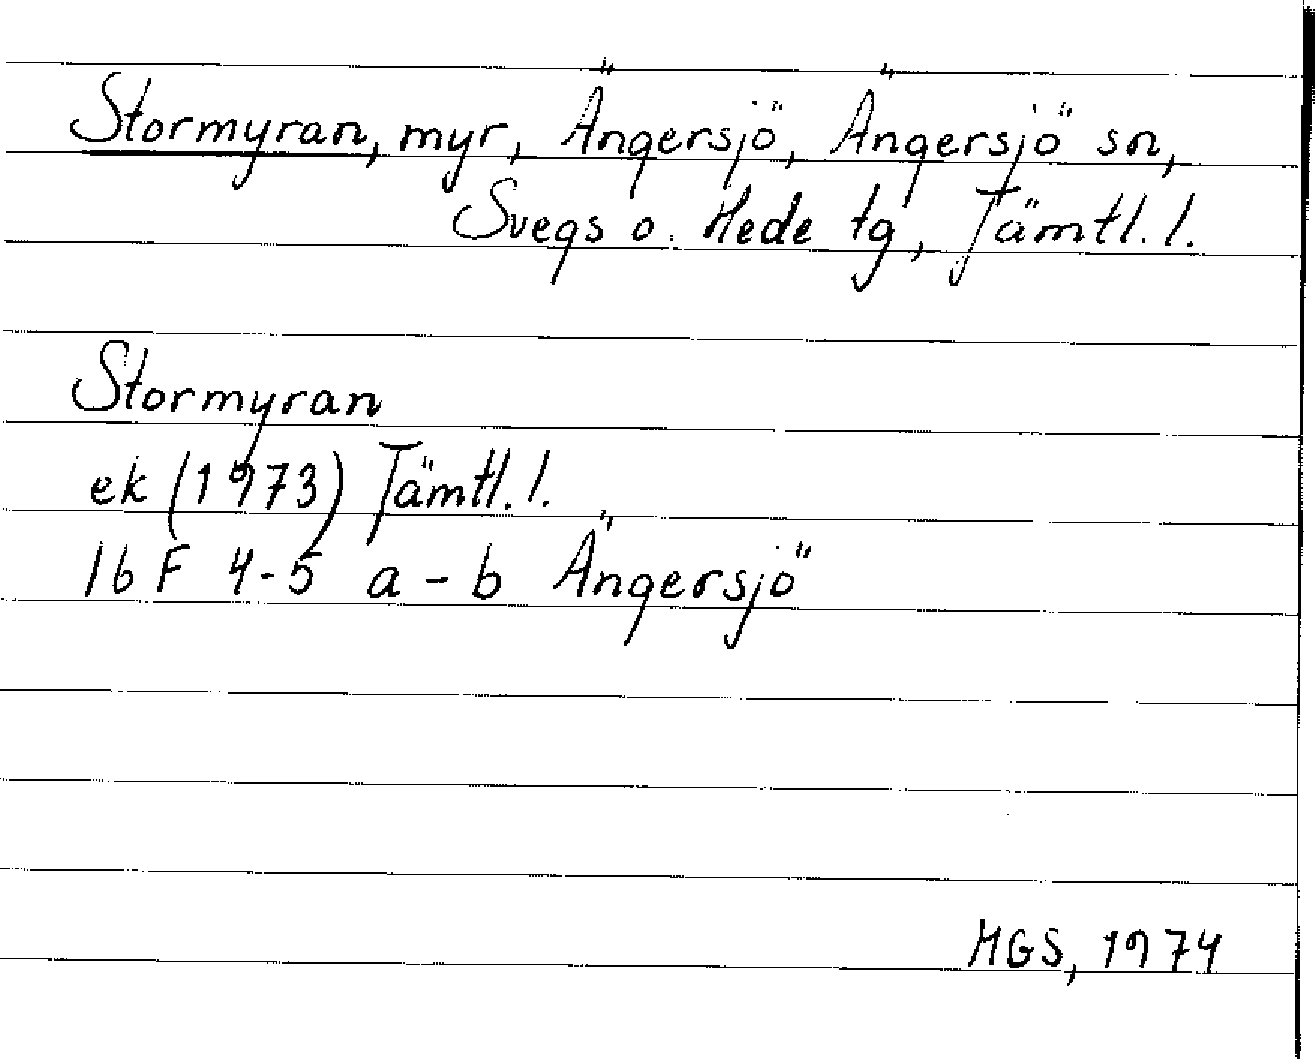 Stormyran, myr, Ängersjö, Ängersjö sn,
Svegs o. Hede tg, Jämtl. l.
Stormyran
ek (1973) Jämtl. l.
16 F 4-5 a - b Ängersjö
MGS, 1974